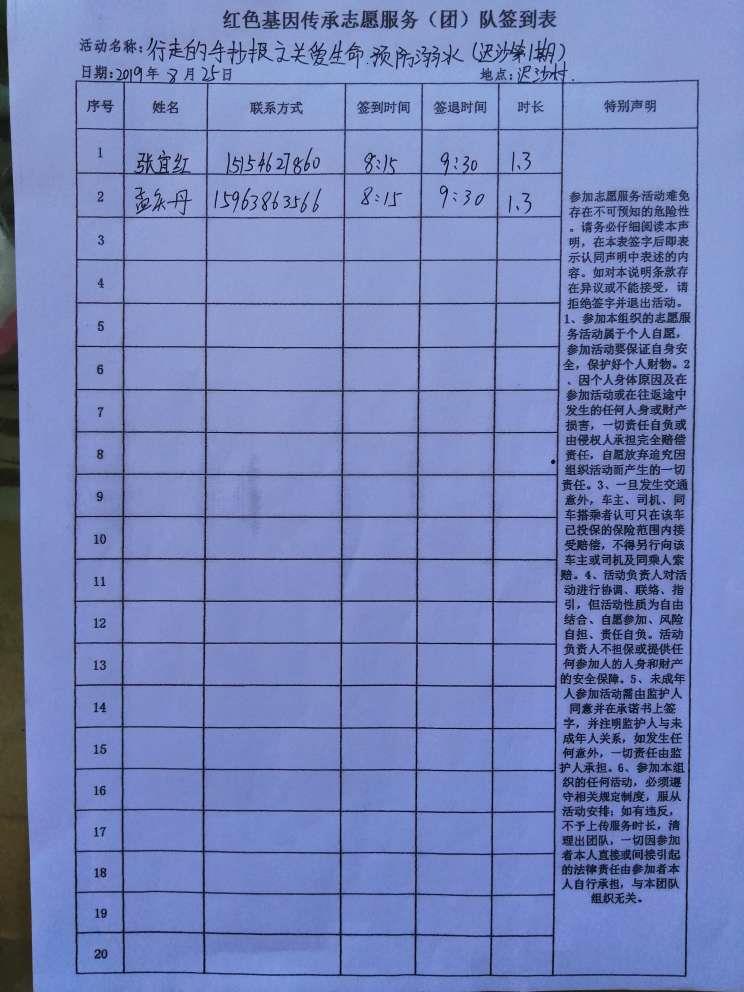 红色基因传承志愿服务（团）队签到表
活动名称：行走的手抄报之关爱生命.预防溺水（迟沙第1期）
日期：2019年8月25日 地点：迟沙村.
序号 姓名 联系方式 签到时间 签退时间 时长 特别声明
1 张宜红 15154627860 8:15 9:30 1.3
2 孟 丹 15963863566 8:15 9:30 1.3
3
4
5
6
7
8
9
10
11
12
13
14
15
16
17
18
19
20
参加志愿服务活动难免
存在不可预知的危险性
。请务必仔细阅读本声
明，在本表签字后即表
示认同声明中表述的内
容。如对本说明条款存
在异议或不能接受，请
拒绝签字并退出活动。
1、参加本组织的志愿服
务活动属于个人自愿，
参加活动要保证自身安
全，保护好个人财物。2
、因个人身体原因及在
参加活动或在往返途中
发生的任何人身或财产
损害，一切责任自负或
由侵权人承担完全赔偿
责任，自愿放弃追究因
组织活动而产生的一切
责任。3、一旦发生交通
意外，车主、司机、同
车搭乘者认可只在该车
已投保的保险范围内接
受赔偿，不得另行向该
车主或司机及同乘人索
赔。4、活动负责人对活
动进行协调、联络、指
引，但活动性质为自由
结合、自愿参加、风险
自担、责任自负。活动
负责人不担保或提供任
何参加人的人身和财产
的安全保障。5、未成年
人参加活动需由监护人
同意并在承诺书上签
字，并注明监护人与未
成年人关系，如发生任
何意外，一切责任由监
护人承担。6、参加本组
织的任何活动，必须遵
守相关规定制度，服从
活动安排；如有违反，
不予上传服务时长，清
理出团队，一切因参加
者本人直接或间接引起
的法律责任由参加者本
人自行承担，与本团队
组织无关。